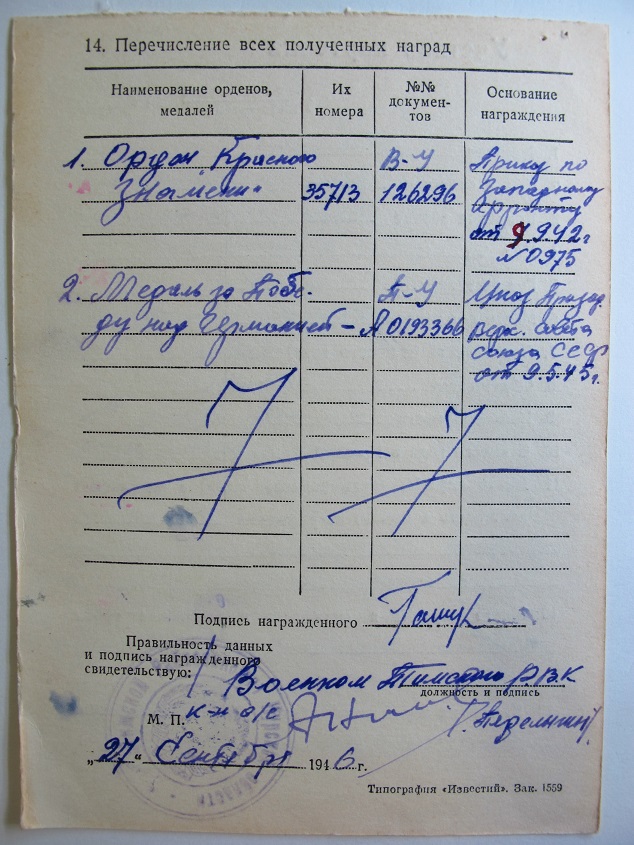 14. Перечисление всех полученных наград
Наименование орденов, медалей
Их номера
№№ документов
Основание награждения
1. Орден Красного В-У Приказ по
Знамени" 35713 126296 Западному
фронту
от 9.942г
№0975
2. Медаль за Побе- П-У Указ Презид.
ду над Германией - А 0193366 верх. совета
союза СССР
от 9.5.45г.
Подпись награжденного
Правильность данных
и подпись награжденного
свидетельствую: Военком РВК
должность и подпись
М. П. к-н а/с
„27“ Сентября 1946 г.
Типография «Известий». Зак. 1559